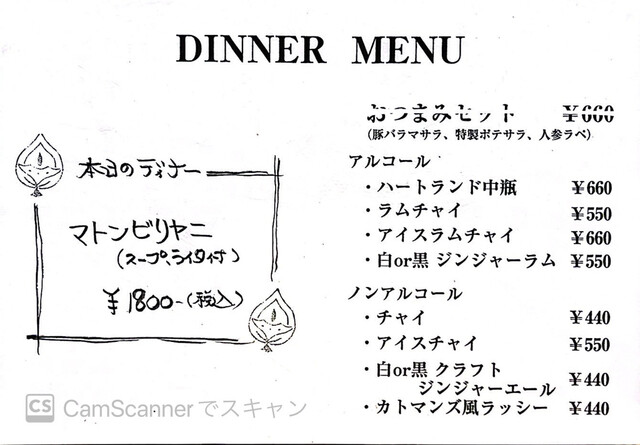 DINNER MENU
本日のディナー
マトンビリヤニ
(スープ、ライタ付)
¥1800-(税込)
おつまみセット ¥660
(豚バラマサラ、特製ポテサラ、人参ラペ)
アルコール
・ハートランド中瓶 ¥660
・ラムチャイ ¥550
・アイスラムチャイ ¥660
・白or黒 ジンジャーラム ¥550
ノンアルコール
・チャイ ¥440
・アイスチャイ ¥550
・白or黒 クラフト
ジンジャーエール ¥440
・カトマンズ風ラッシー ¥440
CS CamScannerでスキャン